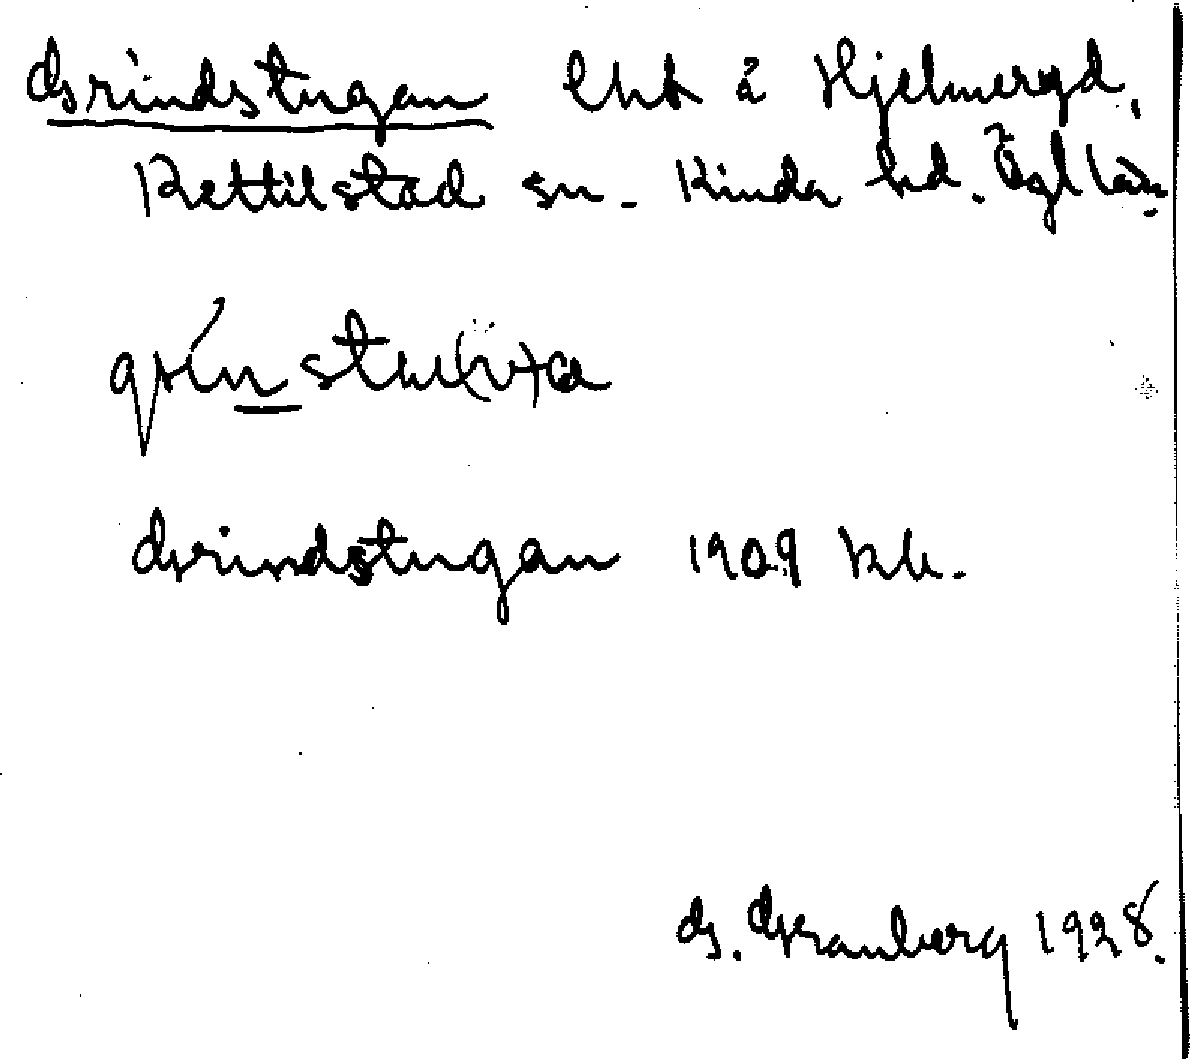 Grindstugan lht å Hjelmeryd,
Kettilstad sn. Kinda hd. Ögl län
grinstu(v)a
Grindstugan 1909 kb.
G. Granberg 1928.